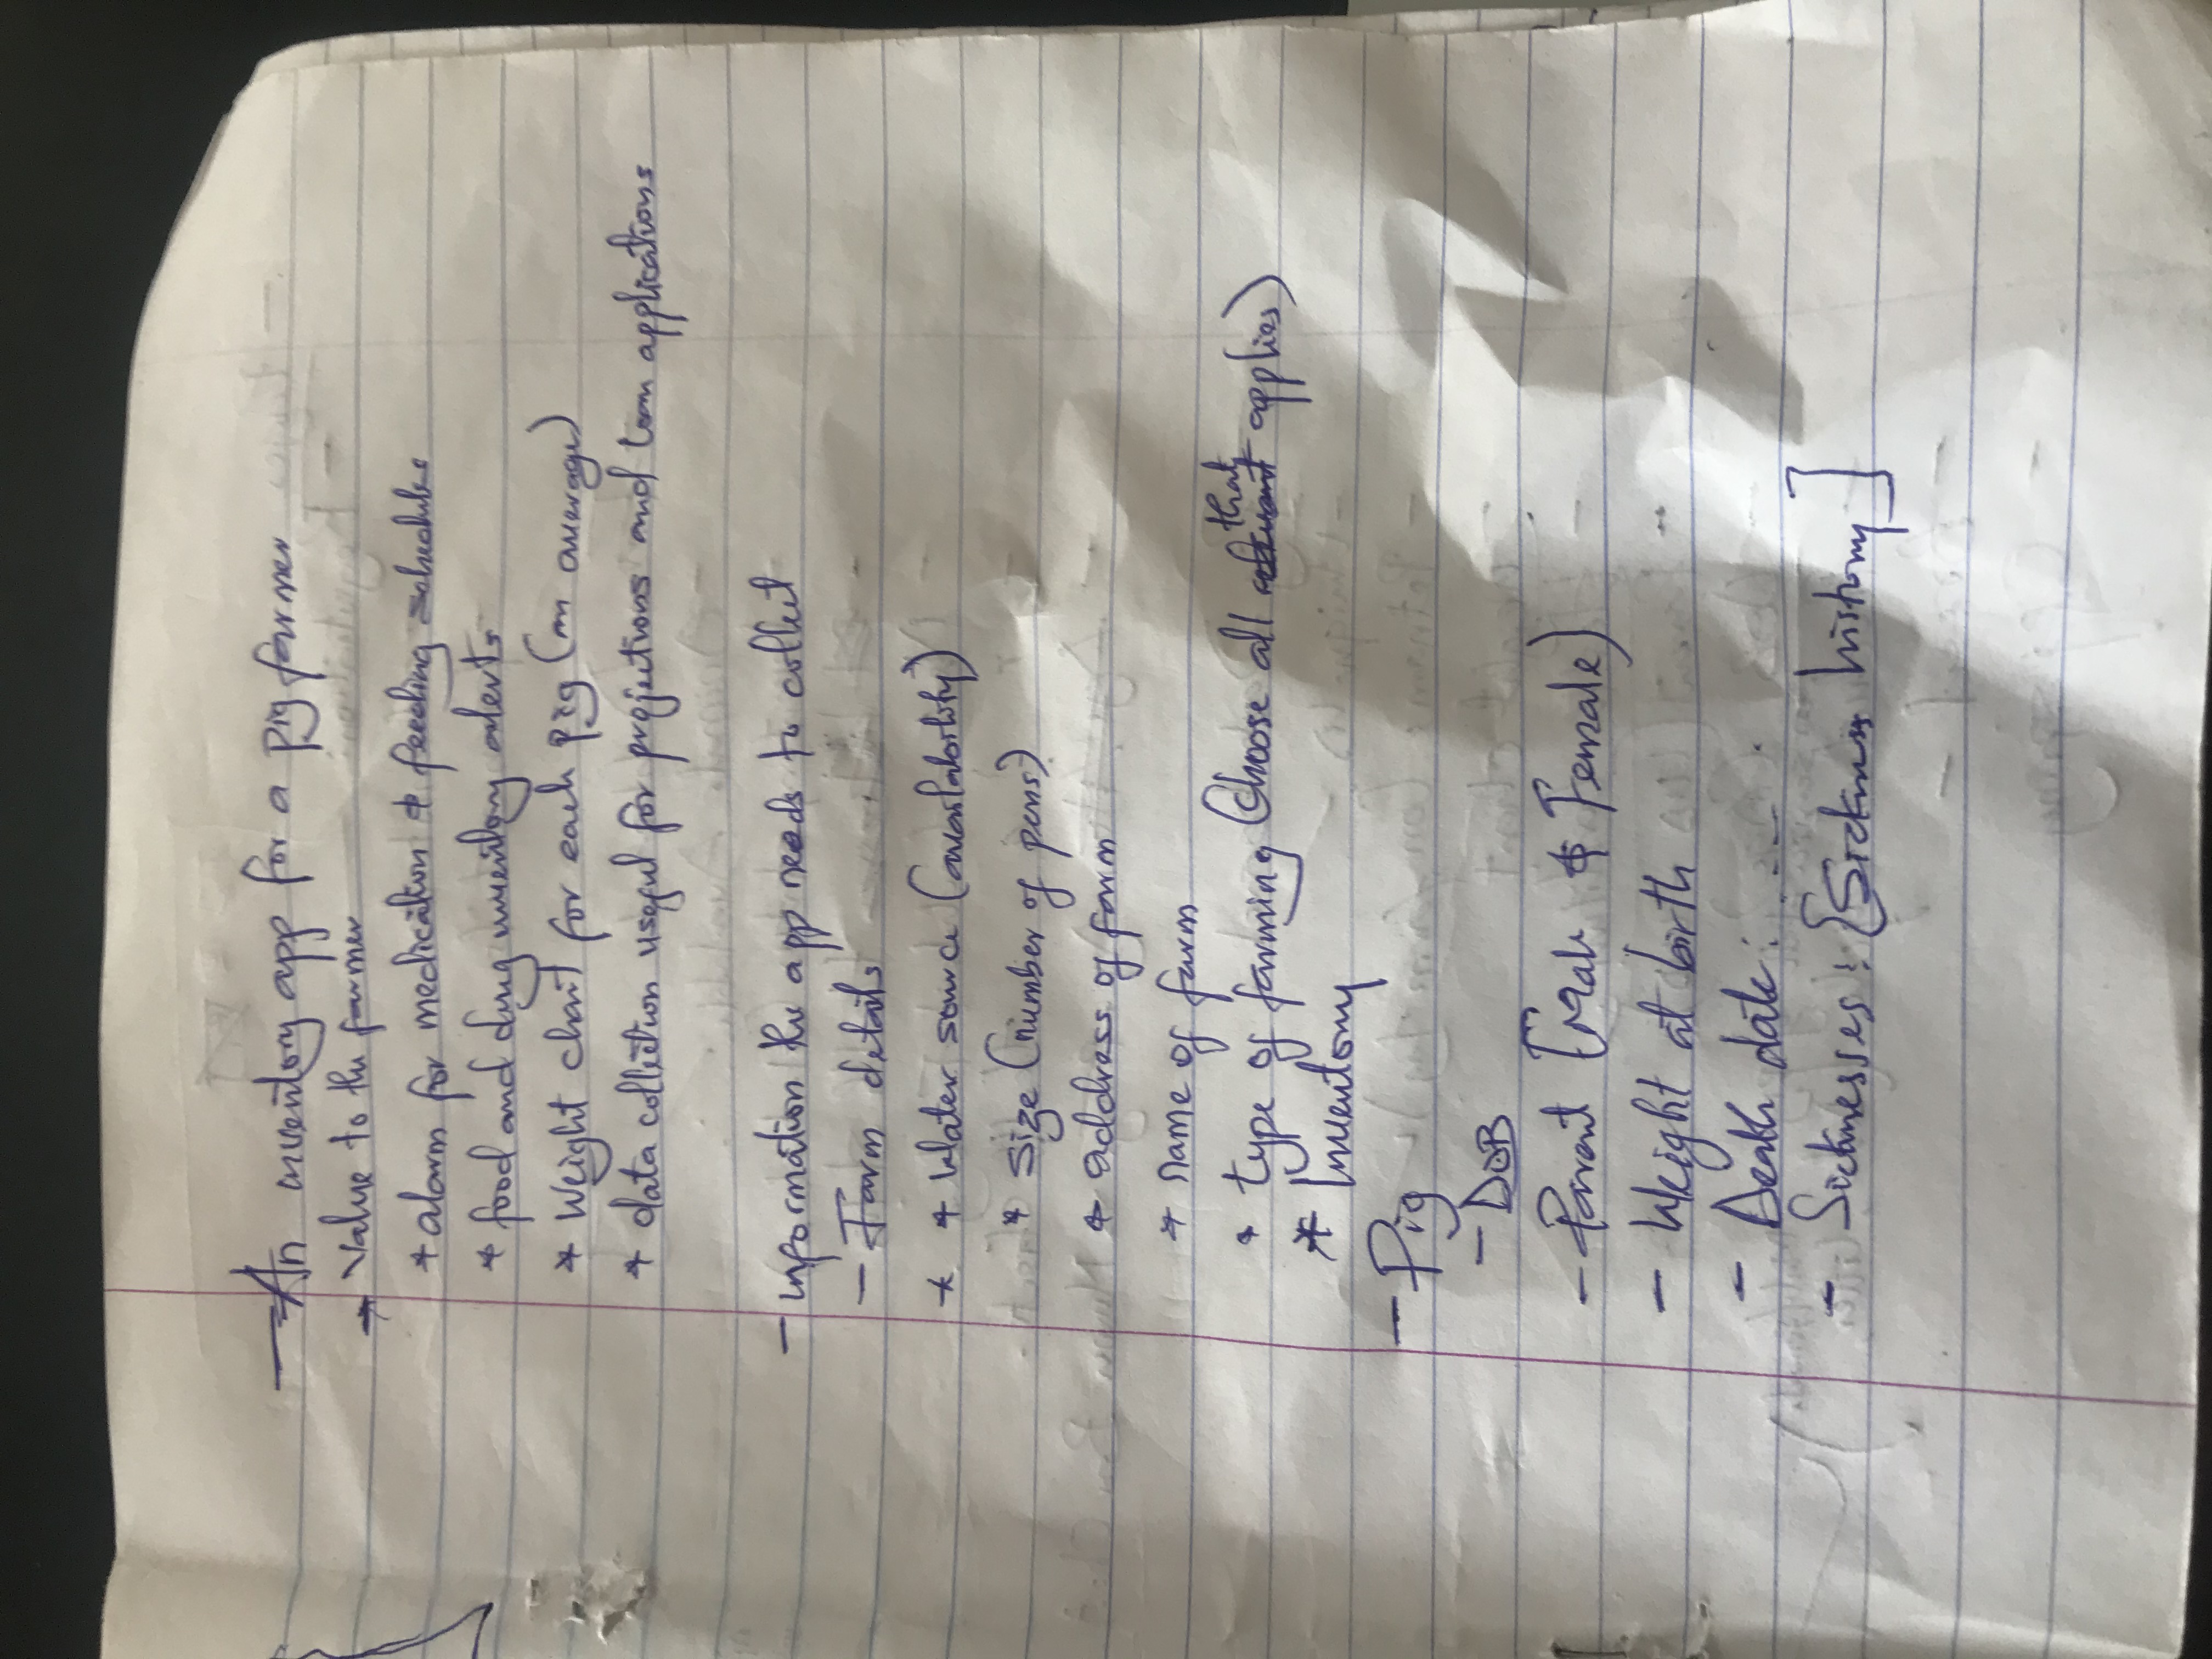 - An inventory app for a pig farmer
→ Value to the farmer
* alarm for medication & feeding schedules
* food and drug inventory alerts
* Weight chart for each pig (on average)
* data collection useful for projections and loan applications
- information the app needs to collect
- Farm details
* * Water source (availability)
* Size (number of pens)
* address of farm
* name of farm
* type of farming (Choose all that applies)
* Inventory
- Pig
- DOB
- Parent [Male & Female)
- Weight at birth
- Death date: ....
- Sicknesses: [Sickness history]